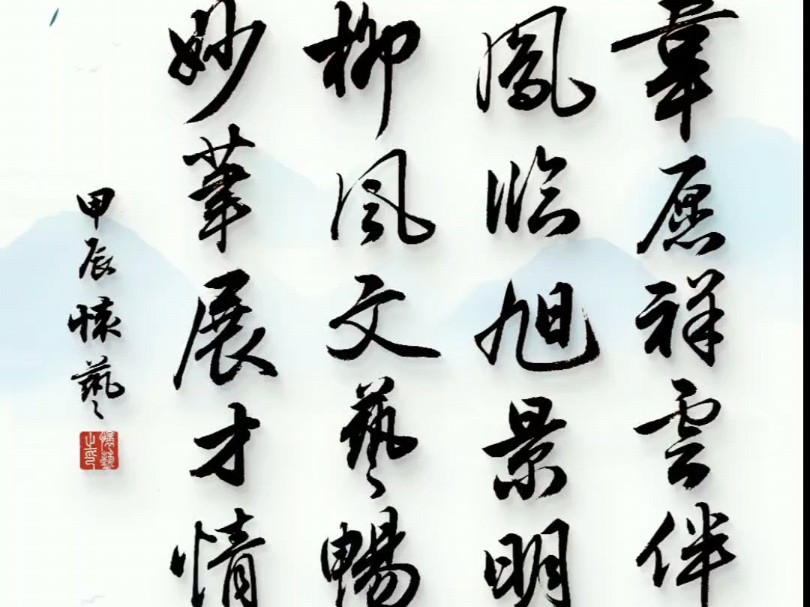 韋愿祥雲伴
鳳臨旭景明
柳風文藝暢
妙筆展才情
甲辰懷藝